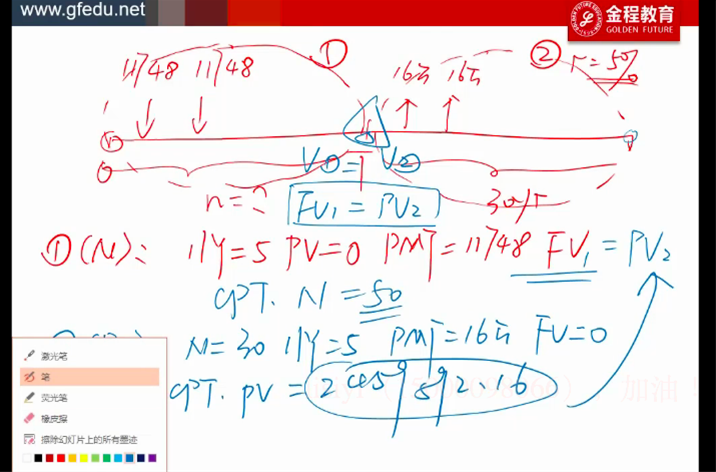 www.gfedu.net
金程教育
GOLDEN FUTURE
11748 11748 ① 16万 16万 ② r=5%
V① = V②
n=? FV₁ = PV₂ 30年
①(N): I/Y=5 PV=0 PMT=11748 FV₁ = PV₂
CPT. N = 50
N=30 I/Y=5 PMT=16万 FV=0
CPT. PV = 2459592.16
加油!
激光笔
笔
荧光笔
橡皮擦
擦除幻灯片上的所有墨迹